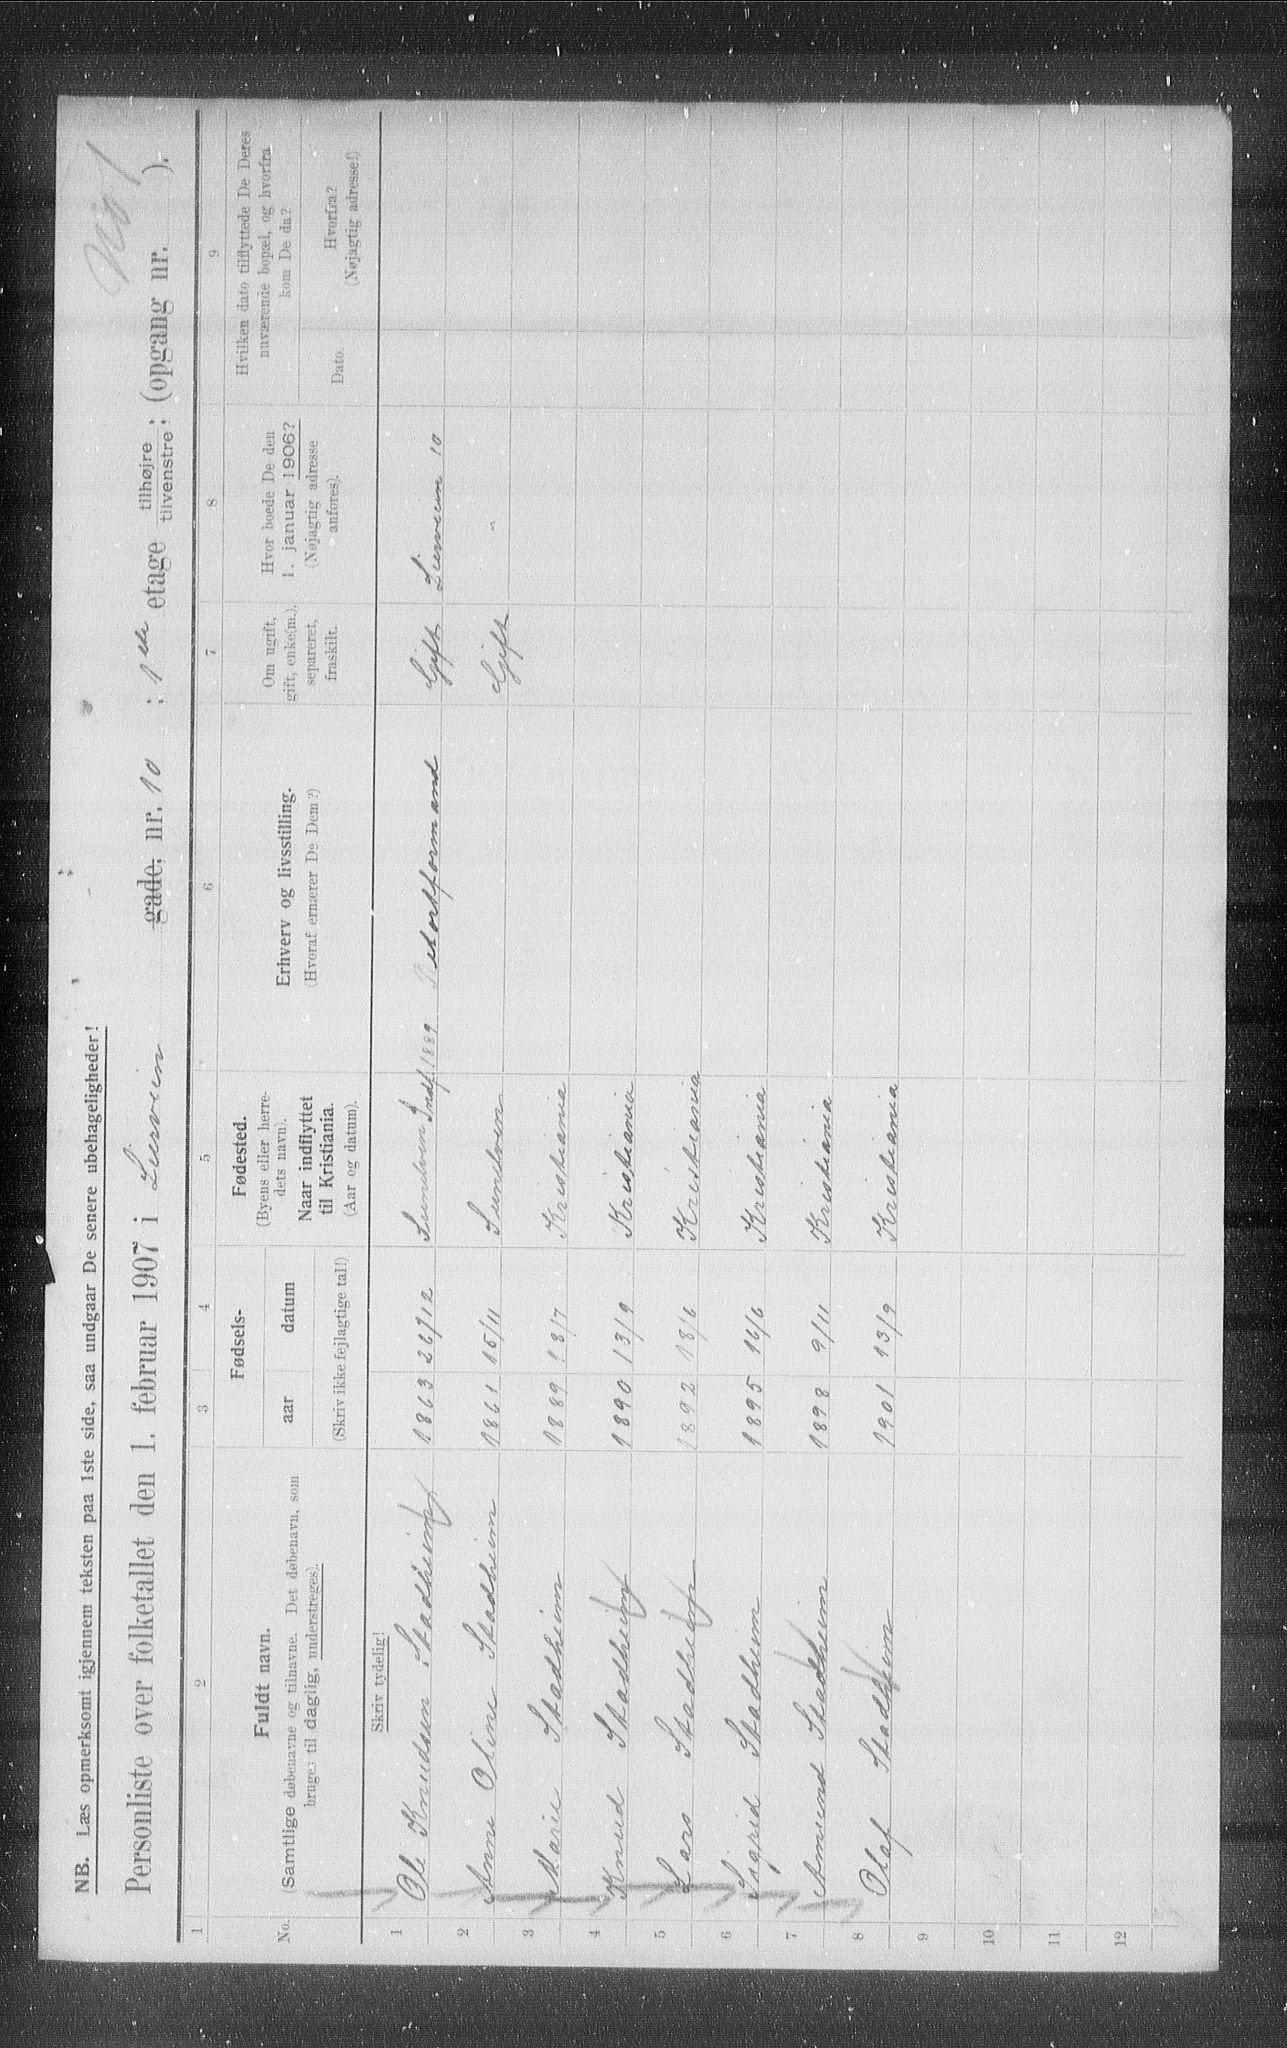 NB. Læs opmerksomt igjennem teksten paa 1ste side, saa undgaar De senere ubehageligheder!
Personliste over folketallet den 1. februar 1907 i Liesveien gade, nr. 10 ; 1ste etage tilhøjre ; tilvenstre ; (opgang nr. ).
1 2 3 4 5 6 7 8 9
No.
Fuldt navn.
(Samtlige døbenavne og tilnavne. Det døbenavn, som
bruges til daglig, understreges).
Fødsels-
aar datum
(Skriv ikke fejlagtige tal!)
Fødested.
(Byens eller herre-
dets navn).
Naar indflyttet
til Kristiania.
(Aar og datum).
Erhverv og livsstilling.
(Hvoraf ernærer De Dem?)
Om ugift,
gift, enke(m.),
separeret,
fraskilt.
Hvor boede De den
1. januar 1906?
(Nøjagtig adresse
anføres).
Hvilken dato tilflyttede De Deres
nuværende bopæl, og hvorfra
kom De da?
Dato.
Hvorfra?
(Nøjagtig adresse!)
Skriv tydelig!
1 Ole Knudsen Stadheim 1863 26/12 Lunden Indf. 1889 Retortformand Gift Liesveien 10
2 Anne Oline Stadheim 1861 15/11 Gift "
3 Marie Stadheim 1889 18/7 Kristiania
4 Knud Stadheim 1890 13/9 Kristiania
5 Lars Stadheim 1892 18/6 Kristiania
6 Sigrid Stadheim 1895 16/6 Kristiania
7 Amund Stadheim 1898 9/11 Kristiania
8 Olaf Stadheim 1901 13/9 Kristiania
9
10
11
12